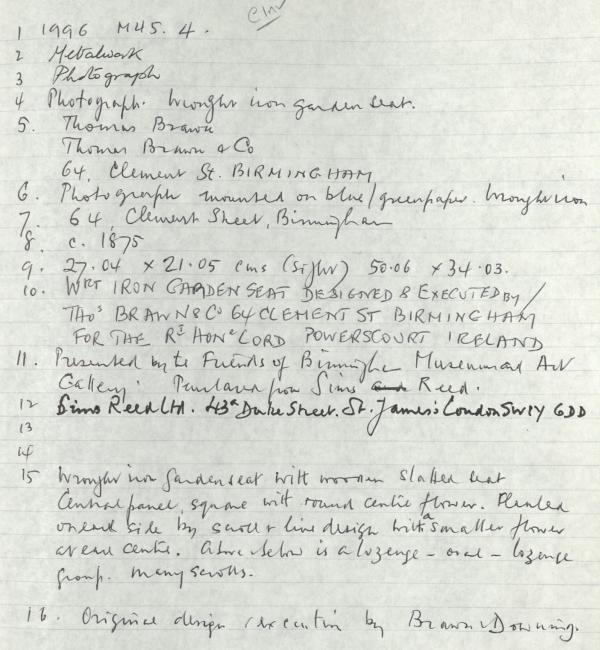 1 1996 M45. 4.
2 Metalwork
3 Photograph
4 Photograph. Wrought iron garden seat.
5. Thomas Brawn
Thomas Brawn & Co
64, Clement St. BIRMINGHAM
6. Photograph mounted on blue/green paper. Wrought iron
7. 64 Clement Street, Birmingham
8. c. 1875
9. 27.04 x 21.05 cms (Sight) 50.06 x 34.03.
10. WRT IRON GARDEN SEAT DESIGNED & EXECUTED by /
THOS BRAWN & Co 64 CLEMENT ST BIRMINGHAM
FOR THE RT HONe LORD POWERSCOURT IRELAND
11. Presented by the Friends of Birmingham Museum and Art
Gallery. Purchased from Sims and Reed.
12 Sims Reed Ltd. 43a Duke Street. St. James's London SW1Y 6DD
13
14
15 Wrought iron garden seat with wooden slatted seat
Central panel, square with round centre flower. Flanked
on each side by scroll & line design with a smaller flower
at each centre. Above & below is a lozenge - oval - lozenge
group. Many scrolls.
16. Original design / execution by Brawn & Downing.